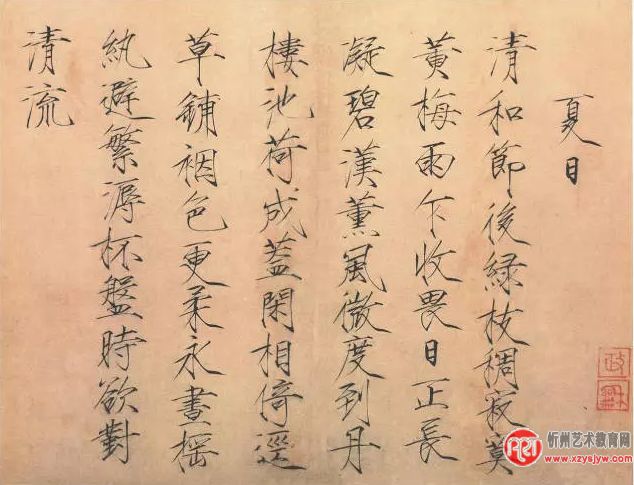 夏日
清和節後綠枝稠寂寞
黃梅雨乍收畏日正長
凝碧漢薰風微度到丹
樓池荷成蓋閑相倚逕
草鋪裀色更柔永晝搖
紈避繁溽杯盤時欲對
清流
忻州艺术教育网
www.xzysjyw.com